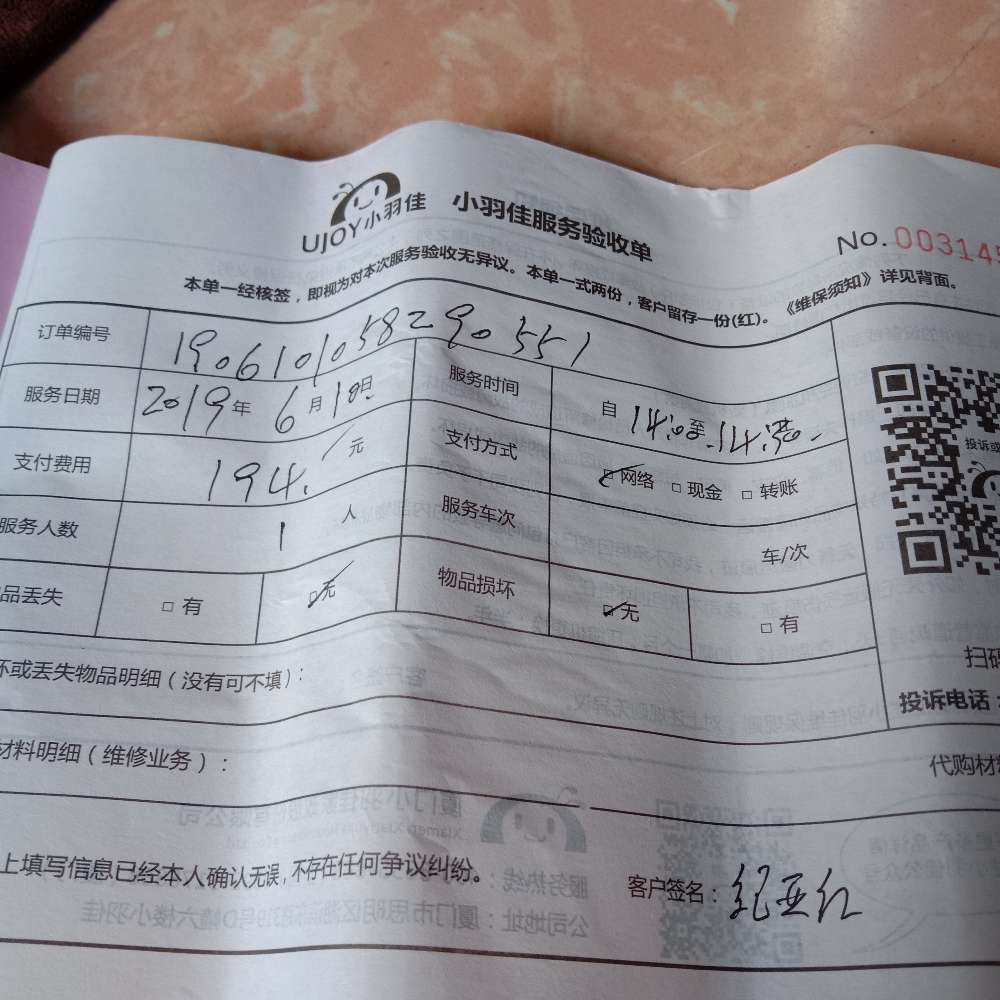 UJOY小羽佳 小羽佳服务验收单
No. 003145
本单一经核签，即视为对本次服务验收无异议。本单一式两份，客户留存一份(红)。《维保须知》详见背面。
订单编号 1906101058290551
服务日期 2019年 6月10日 服务时间 自 14:00至-14:30
支付费用 194. 元 支付方式 网络 现金 转账
服务人数 1 人 服务车次 车/次
品丢失 有 无 物品损坏 无 有
投诉或
扫码
投诉电话：
坏或丢失物品明细（没有可不填）：
材料明细（维修业务）： 代购材
上填写信息已经本人确认无误，不存在任何争议纠纷。 客户签名：纪亚红